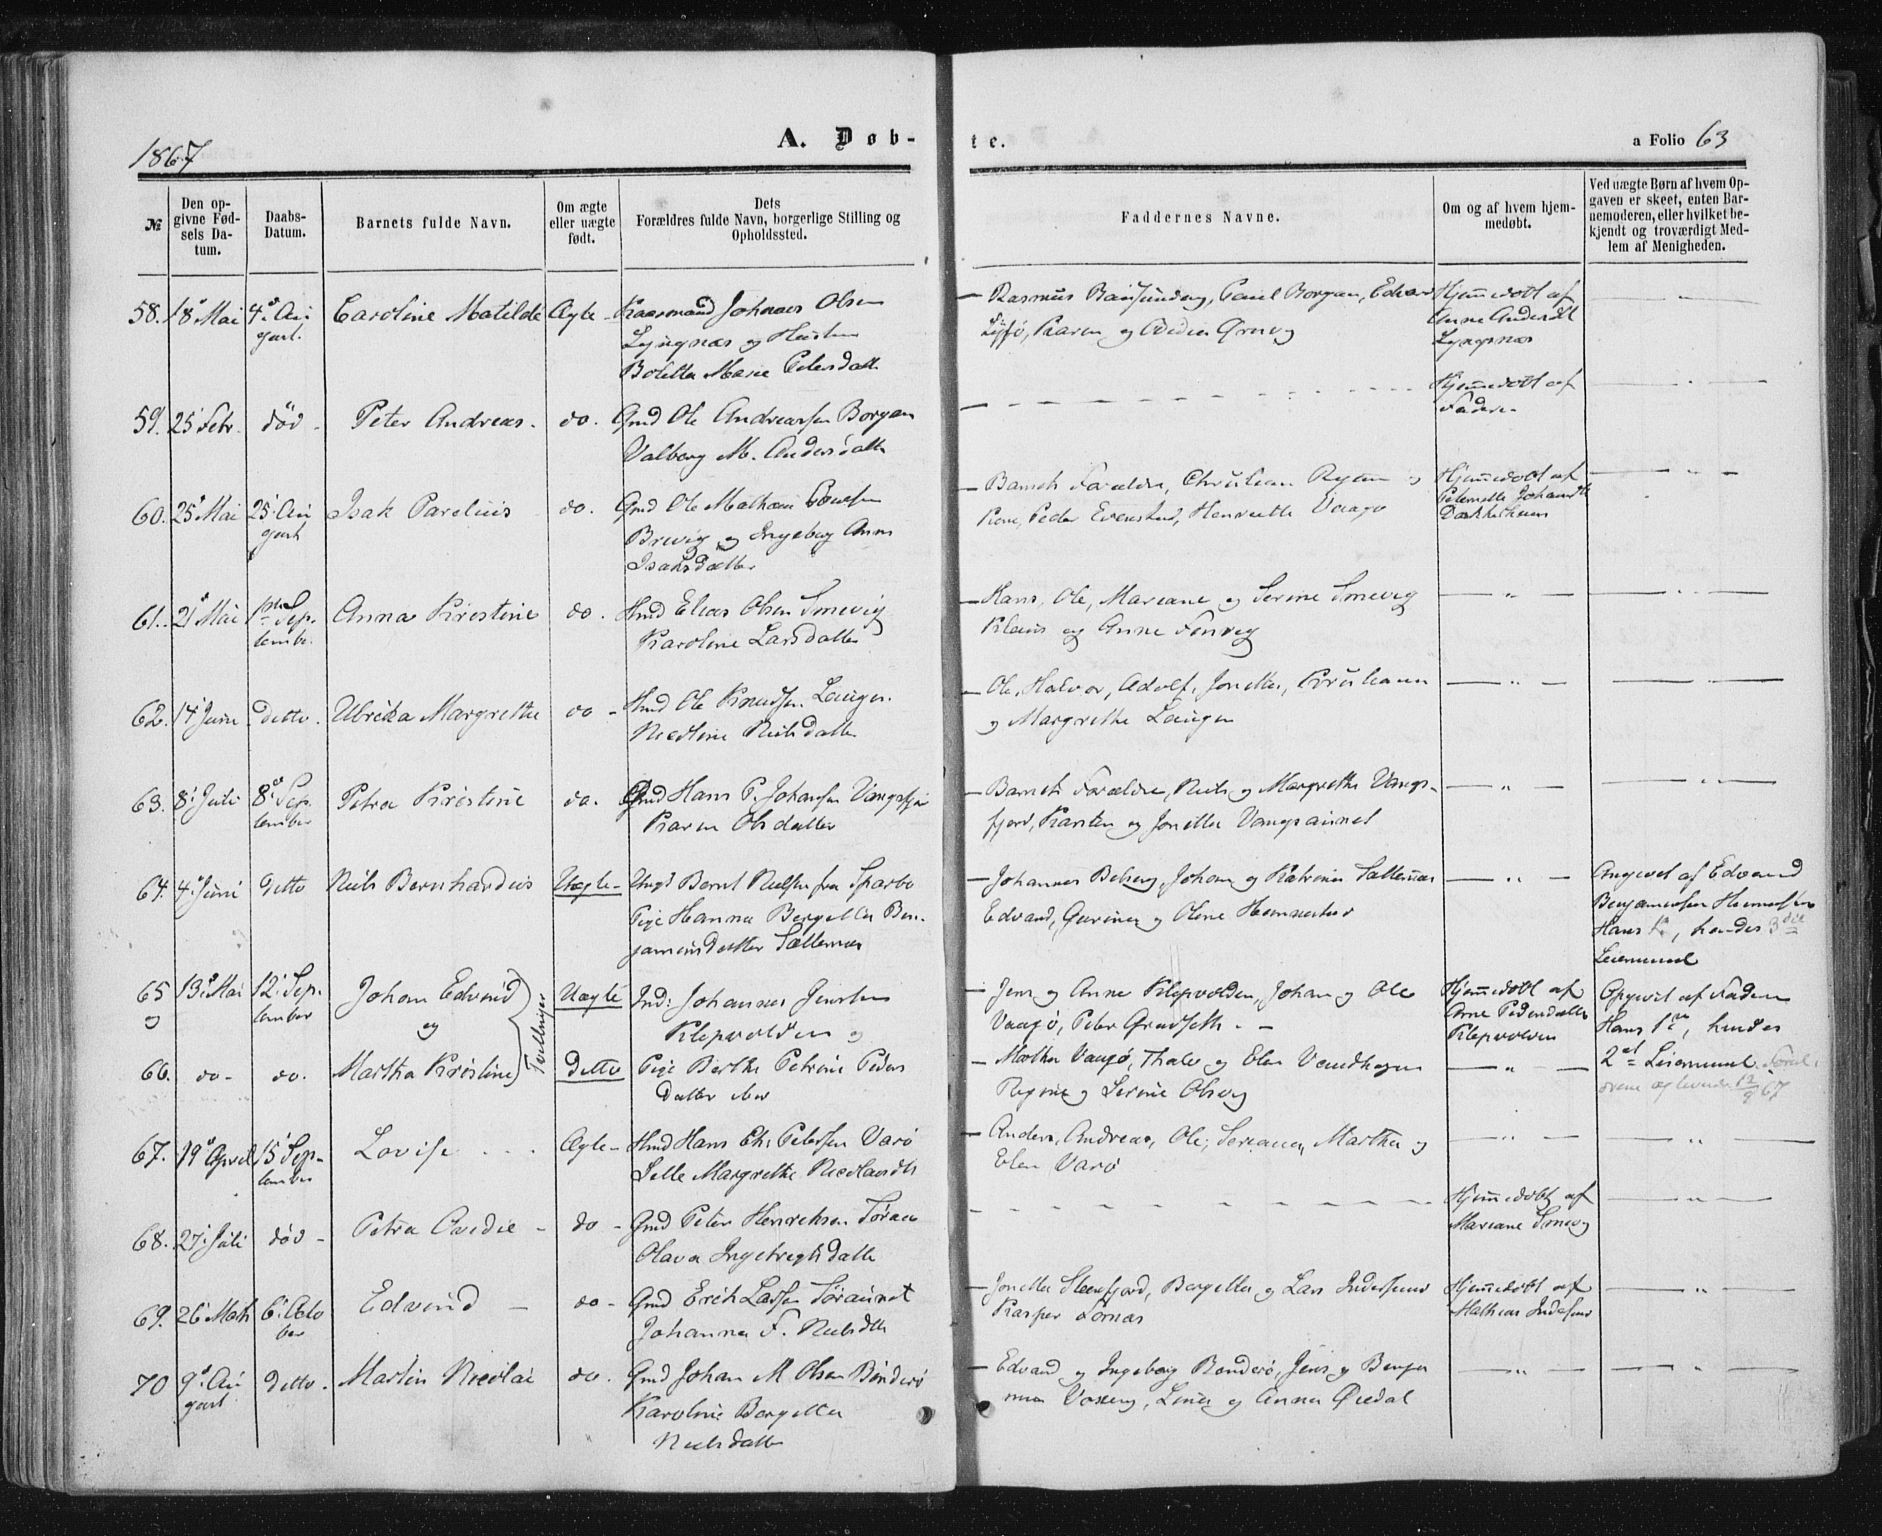 1867
A. Døb-
te.
a Folio 63
№
Den opgivne Fødsels Datum.
Daabs-Datum.
Barnets fulde Navn.
Om ægte eller uægte født.
Dets Forældres fulde Navn, borgerlige Stilling og Opholdssted.
Faddernes Navne.
Om og af hvem hjemmedøbt.
Ved uægte Børn af hvem Opgaven er skeet, enten Barnemoderen, eller hvilket bekjendt og troværdigt Medlem af Menigheden.
58. 18 Mai 4 August. Caroline Matilde Ægte - Johannes Olsen
Lyngnæs og Hustru
Boletta Marie Petersdatt
Rasmus Paul Borgan, Edvard
Karen og
Hjemmedøbt af
Anne Andersdt
Lyngsnæs
59. 25 Febr. død - Peter Andreas. do. Gmd Ole Andreassen Borgan
Valborg M. Andersdatter
Hjemmedøbt af
Faderen
60. 25 Mai 25 August Isak Parelius do. Gmd Ole Mathias Poulsen
Brevig og Ingeborg Anna
Isaksdatter
Barnets Forældre, Christian Ryen og
Kone, Peder Evenstad, Henriette Vaagø
Hjemmedøbt af
Peternelle Johansdtr
61. 21 Mai 1ste September. Anna Kristine do. Hmd Elias Olsen Smevig
Karoline Larsdatter
Hans, Ole, Mariane og Serine Smevig
Klaus og Anne Finvig
62. 14 Juni Ditto. Ulrikka Margrethe do - Hmd Ole Knudsen Laugen
Nicoline Nielsdatter
Ole, Halvor, Adolf, Jonetta, Kristiane
og Margrethe Laugen
63. 8 Juli 8 September Petra Kristine do. Gmd Hans P. Johansen Vangsfjor
Karen Olsdatter
Barnets Forældre, Niels og Margrethe Vangs-
fjord, Karsten og Jonetta Vangsaunet
64. 4 Juni Ditto Niels Bernhardus Uægte - Ungk Bernt Nielsen fra Sparbo
Pige Hanna Bergitta Ben-
jaminsdatter Sætternæs
Johannes Johan og Katrina Sætternæs
Edvard, Gurine og Oline Hemnestad
Angivet af Edvard
Benjaminsen Hemnestad
Hans 1ste, hendes 3die
Leiermaal
65 13 Mai 12 September Johan Edvind Uægte Ind: Johannes Jensen
og og Tvillinger Klepvolden og
66. do - do. Martha Kristine Ditto Pige Berthe Petrine Peders
datter ibid
Jens og Anne Klepvolden, Johan og Ole
Vaagø, Peter Grudseth. -
Martha Vaagø, Thale og Elen
Regine og Serine Olsvig
Hjemmedøbt af
Anne Pedersdatter
Klepvolden
Opgivet af Faderen
Hans 1ste, hendes
2et Leiermaal.
67. 19 April 15 September Lovise Ægte - Hmd Hans Chr Petersen Varø
Sille Margrethe Nicolaisdtr
Anders, Andreas, Ole, Seriana, Martha og
Elen Varø
68. 27 Juli død - Petra Ovedie - do - Gmd Peter HenriksenFøraa
Olava Ingebregtsdatter
Hjemmedøbt af
Mariane Smevig
69. 26 Mrts 6 October Edvind - do - Gmd Erik Larssen Søraunet
Johanna F. Nielsdtr
Jonetta Steenfjord, Bergitta og Lars
Kasper Lornæs
Hjemmedøbt af
Mathias
70 9 August Ditto. Martin Nicolai do. Gmd Johan M Olsen Bonderø
Karoline Bergitta
Nielsdatter
Edvard og Ingeborg Bonderø, Jens og Benja
mina Line og Anna Øiedal